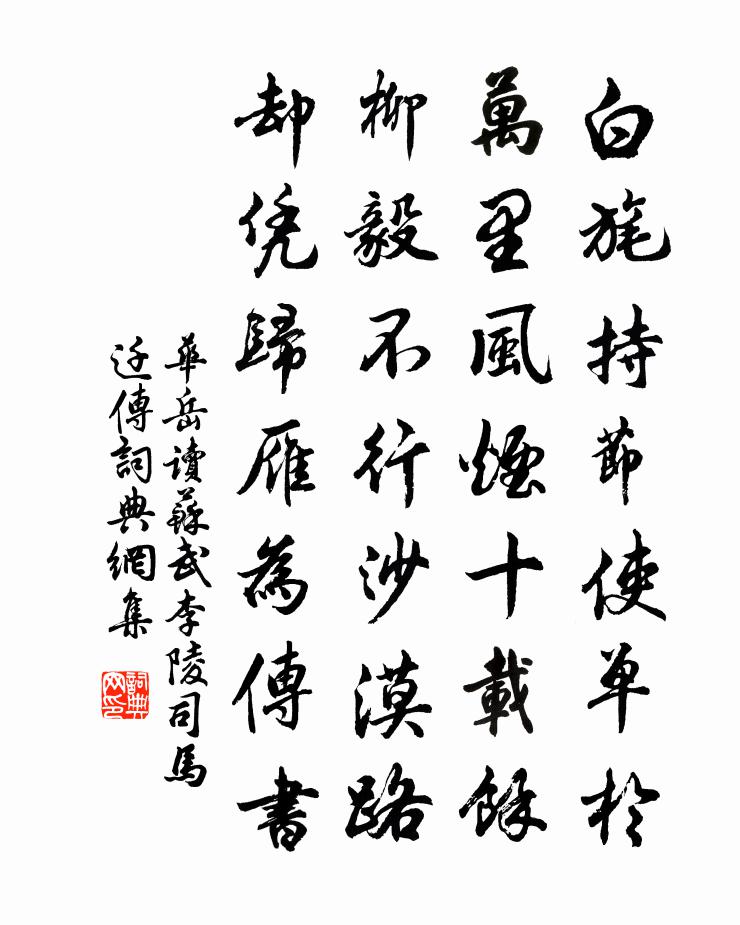 白旄持節使單於
萬里風煙十載餘
柳毅不行沙漠路
却凭歸雁為傳書
華岳讀蘇武李陵司馬
迁傳詞典網集
詞典网印